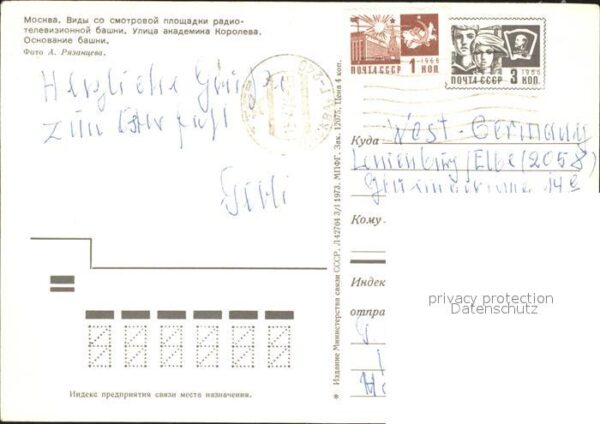 Москва. Виды со смотровой площадки радио-
телевизионной башни. Улица академика Королева.
Основание башни.
Фото А. Рязанцева.
Herzliche Grüße
zum
ПОЧТА СССР 1 КОП 1966
ПОЧТА СССР 3 КОП 1966
Издание Министерства связи СССР. Л42704 3/I 1973. МПФГ. Зак. 12075. Цена 4 коп.
Куда West-Germany
Lauenburg/Elbe (2058)
14
Кому
Индек
отпра
privacy protection
Datenschutz
Индекс предприятия связи места назначения.